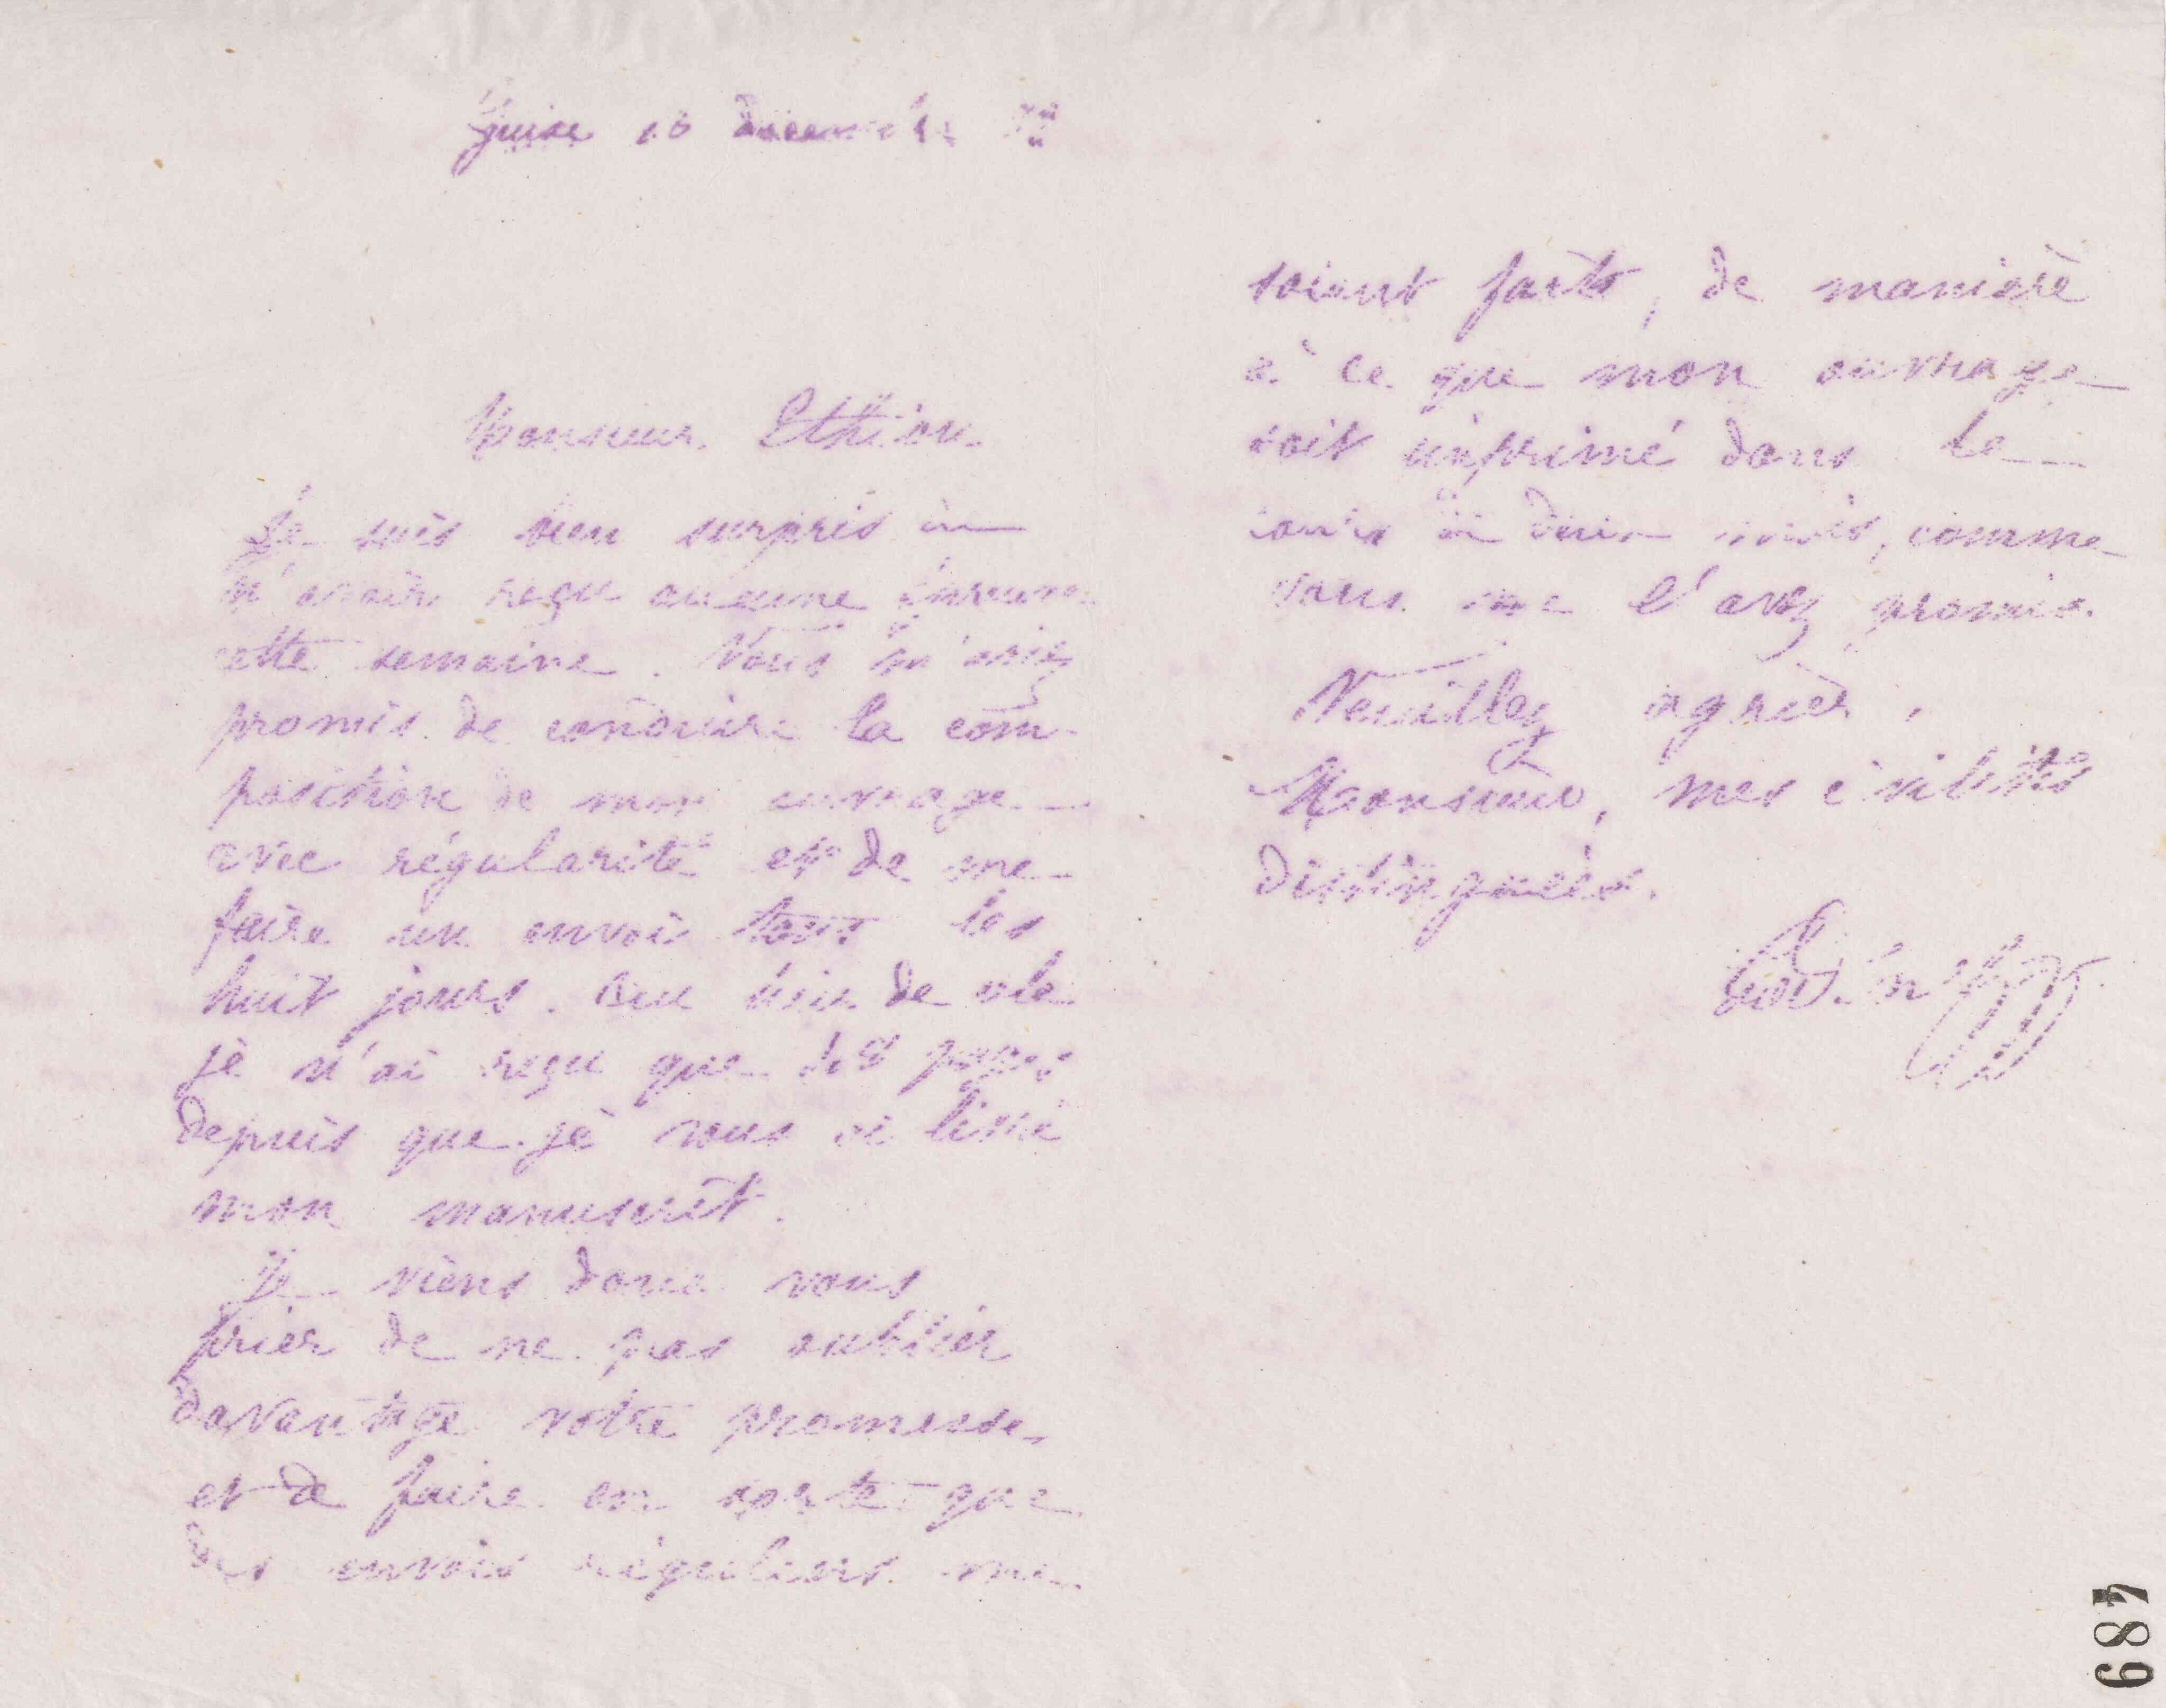 Guise 16 décembre
Monsieur Ethiou
Je suis bien surpris de
n'avoir reçu aucune épreuve
cette semaine. Vous m'aviez
promis de conduire la com-
position de mon ouvrage
avec régularité et de me
faire un envoi tous les
huit jours. Au lieu de cela
je n'ai reçu que 48 pages
depuis que je vous ai livré
mon manuscrit.
Je viens donc vous
prier de ne pas oublier
davantage votre promesse
et de faire en sorte que
des envois réguliers me
soient faits, de manière
à ce que mon ouvrage
soit imprimé dans le
cours de deux mois, comme
vous me l'avez promis.
Veuillez agréer,
Monsieur, mes civilités
distinguées.
489